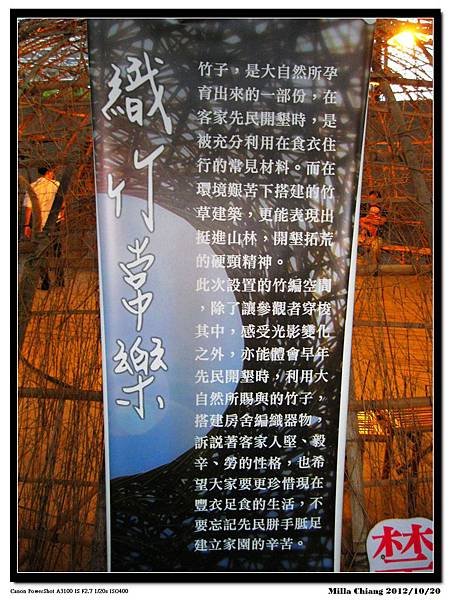 織竹常樂
竹子，是大自然所孕
育出來的一部份，在
客家先民開墾時，是
被充分利用在食衣住
行的常見材料。而在
環境艱苦下搭建的竹
草建築，更能表現出
挺進山林，開墾拓荒
的硬頸精神。
此次設置的竹編空間
，除了讓參觀者穿梭
其中，感受光影變化
之外，亦能體會早年
先民開墾時，利用大
自然所賜與的竹子，
搭建房舍編織器物，
訴說著客家人堅、毅
辛、勞的性格，也希
望大家要更珍惜現在
豐衣足食的生活，不
要忘記先民胼手胝足
建立家園的辛苦。
禁
Canon PowerShot A3100 IS F2.7 1/20s ISO400
Milla Chiang 2012/10/20